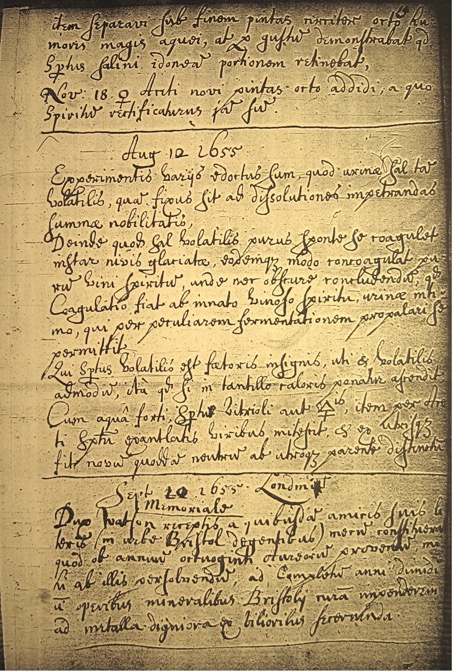 item separavi sub finem pintas circiter octo hu-
moris magis aquei, at ex gustu demonstrabat qd
Sptus salini idoneã portionem retinebat,
Nov. 18. Aceti novi pintas octo addidi, a quo
Spiritũ rectificaturus jã sũ.
Aug 12 1655
Experimentis varijs edoctus sum, quod urinæ sal tã
volatilis, quã fixus sit ad dissolutiones impetrandas
summæ nobilitatis,
Deinde quod sal volatilis purus sponte se coagulet
instar nivis glaciatæ, eodemqz modo concoagulat pu-
rũ vini spiritũ, unde nec obscure concludendũ, qd
Coagulatio fiat ab innato vinoso spiritu, urinæ inti-
mo, qui per peculiarem fermentationem propalari se
permittit.
Qui Sptus volatilis est fætoris insignis, uti & volatilis
admodũ, ità qd si in tantillo caloris ponatur ascendit
Cum aquâ forti, Sptu vitrioli aut is, item per
ti exantlatis viribus mitescit, & ex utrisqz
fit novũ quoddã neutrũ ab utroqz parente distinctũ
Sept. 1655. Londini
Memoriale
Dux Watson receptis a quibusdã amicis suis li-
teris (in urbe Bristol degentibus) mecũ
quod ob annuũ octoginta aureorũ
ab illis persolvendũ, ad Completũ anni dimidi
ũ operibus mineralibus Bristolij cura impenderem
ad metalla digniora ex vilioribus secernenda.